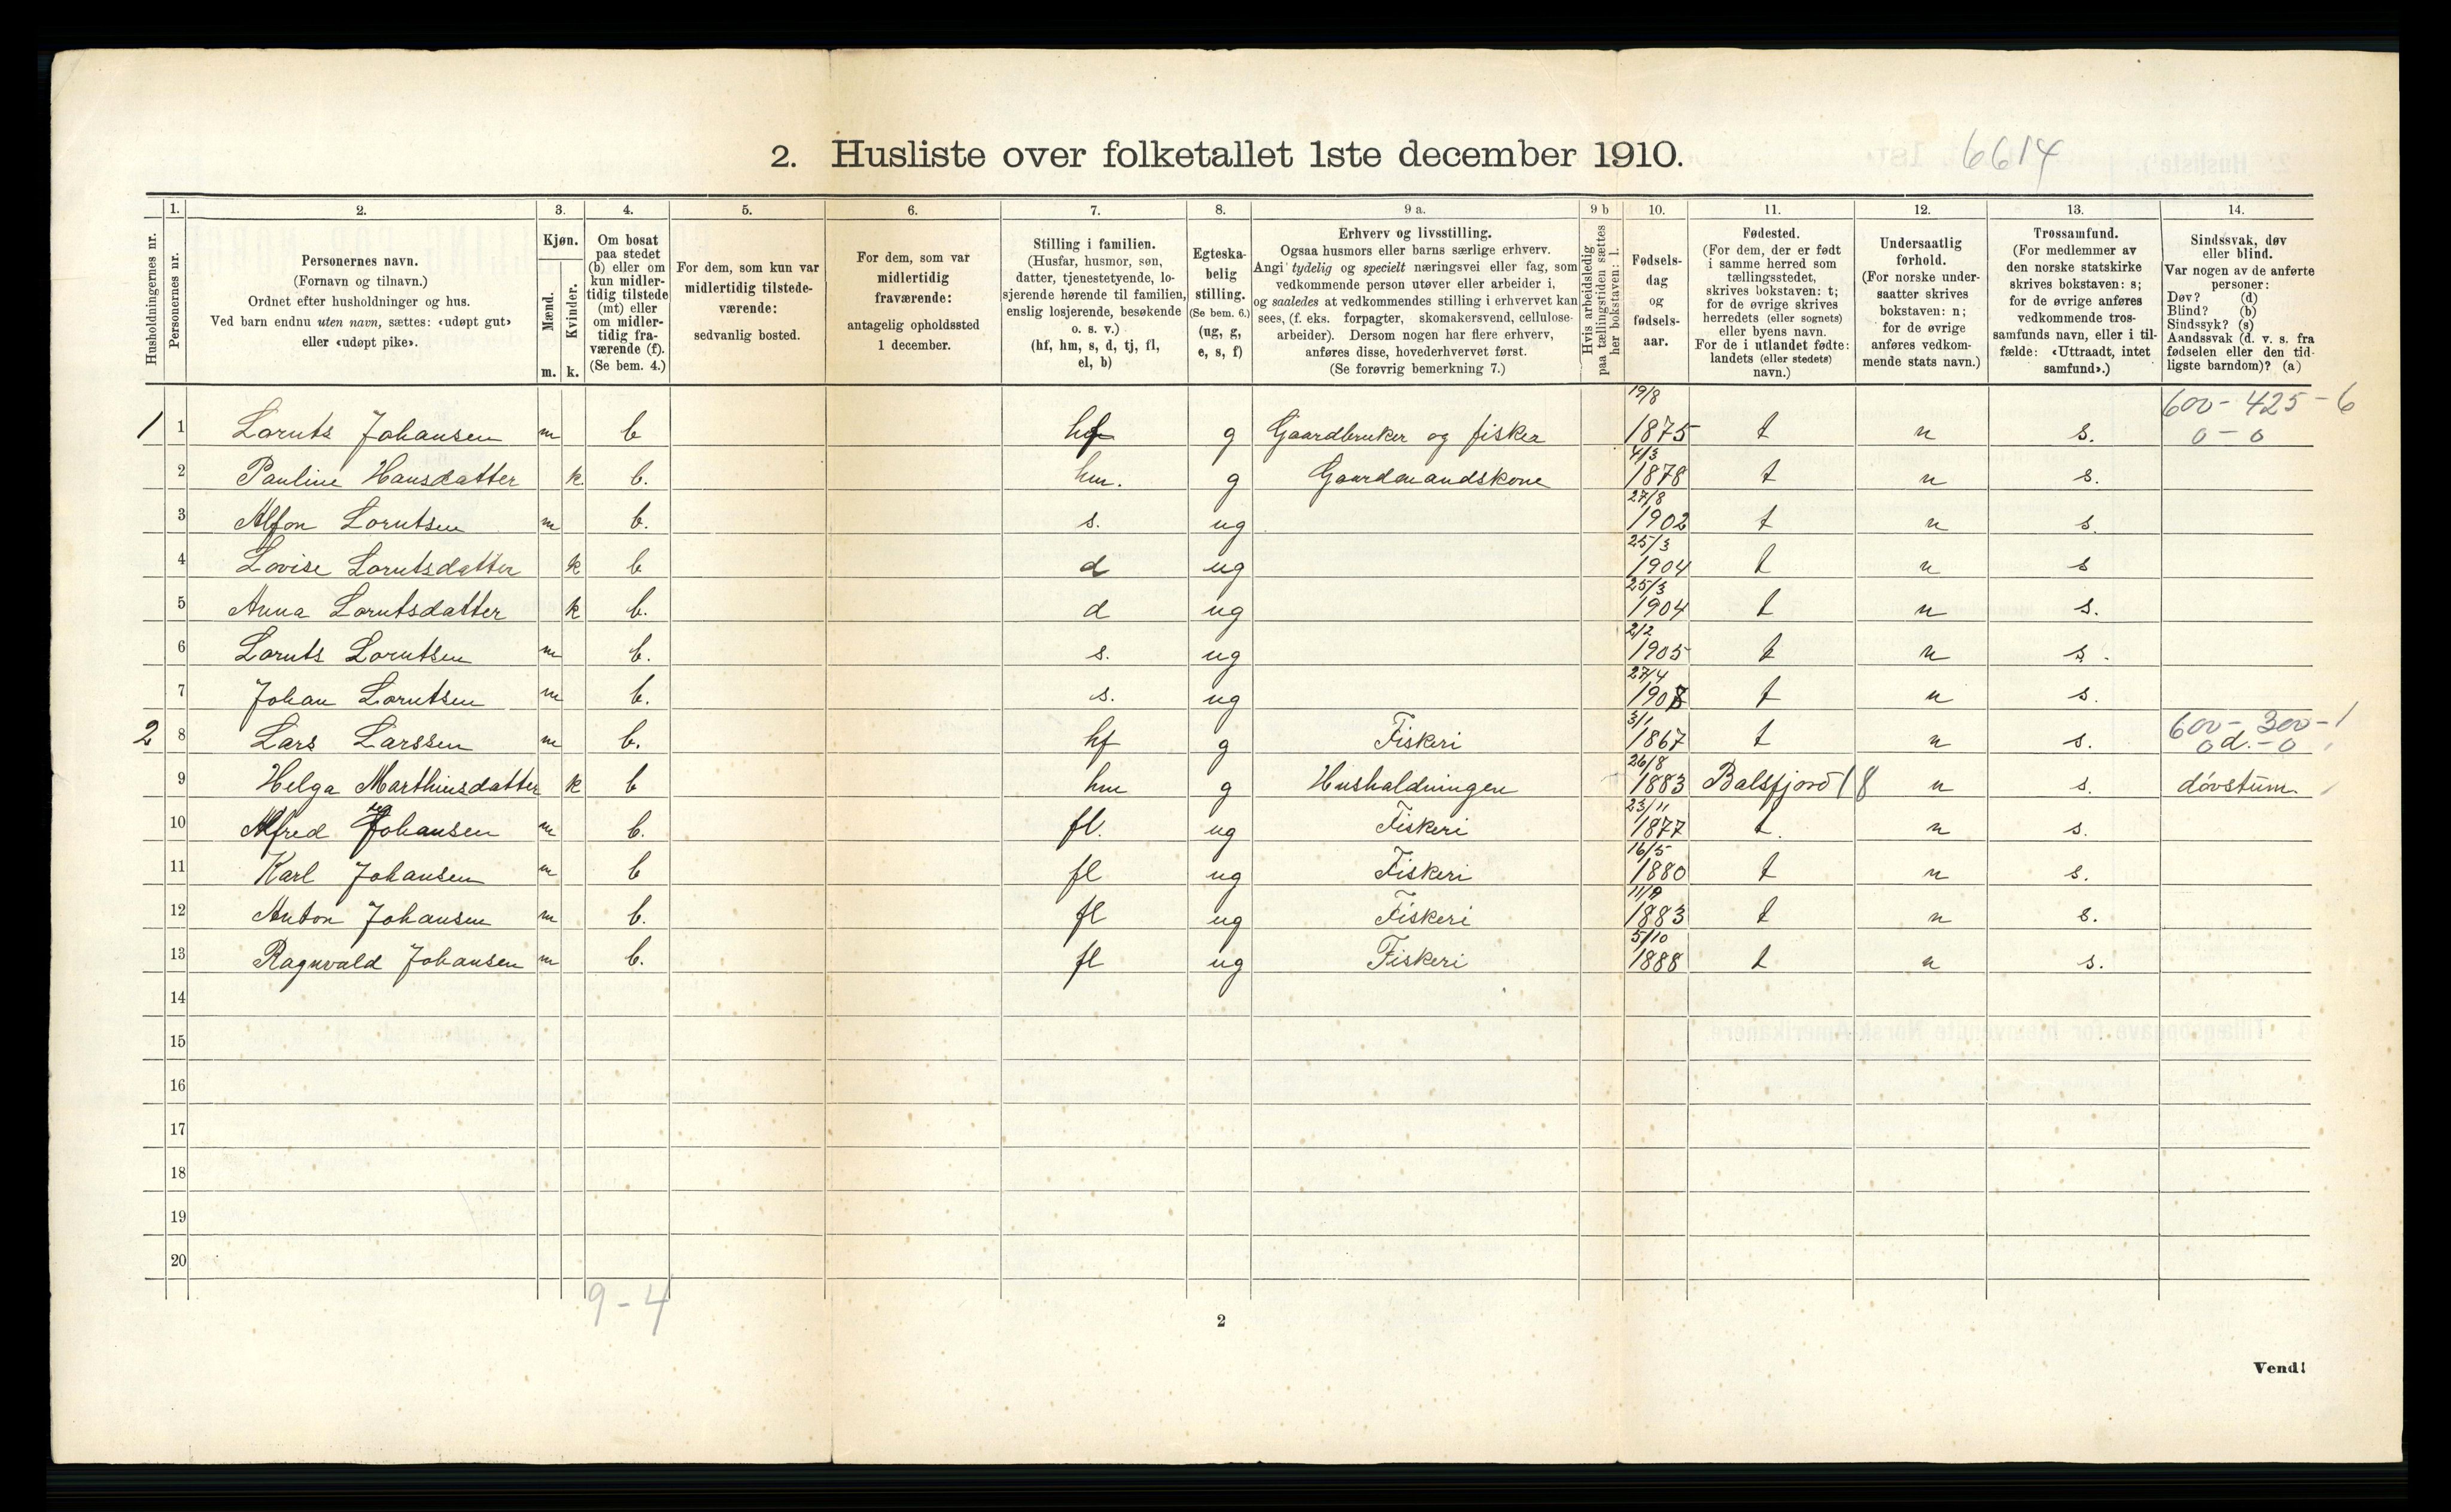 2. Husliste over folketallet 1ste december 1910.
6614
Husholdningernes nr.
1.
Personernes nr.
2.
Personernes navn.
(Fornavn og tilnavn.)
Ordnet efter husholdninger og hus.
Ved barn endnu uten navn, sættes: «udøpt gut»
eller «udøpt pike».
3.
Kjøn.
Mænd.
Kvinder.
m. k.
4.
Om bosat
paa stedet
(b) eller om
kun midler-
tidig tilstede
(mt) eller
om midler-
tidig fra-
værende (f).
(Se bem. 4.)
5.
For dem, som kun var
midlertidig tilstede-
værende:
sedvanlig bosted.
6.
For dem, som var
midlertidig
fraværende:
antagelig opholdssted
1 december.
7.
Stilling i familien.
(Husfar, husmor, søn,
datter, tjenestetyende, lo-
sjerende hørende til familien,
enslig losjerende, besøkende
o. s. v.)
(hf, hm, s, d, tj, fl,
el, b)
8.
Egteska-
belig
stilling.
(Se bem. 6.)
(ug, g,
e, s, f)
9 a.
Erhverv og livsstilling.
Ogsaa husmors eller barns særlige erhverv.
Angi tydelig og specielt næringsvei eller fag, som
vedkommende person utøver eller arbeider i,
og saaledes at vedkommendes stilling i erhvervet kan
sees, (f. eks. forpagter, skomakersvend, cellulose-
arbeider). Dersom nogen har flere erhverv,
anføres disse, hovederhvervet først.
(Se forøvrig bemerkning 7.)
9 b
Hvis arbeidsledig
paa tællingstiden sættes
her bokstaven: l.
10.
Fødsels-
dag
og
fødsels-
aar.
11.
Fødested.
(For dem, der er født
i samme herred som
tællingsstedet,
skrives bokstaven: t;
for de øvrige skrives
herredets (eller sognets)
eller byens navn.
For de i utlandet fødte:
landets (eller stedets)
navn.)
12.
Undersaatlig
forhold.
(For norske under-
saatter skrives
bokstaven: n;
for de øvrige
anføres vedkom-
mende stats navn.)
13.
Trossamfund.
(For medlemmer av
den norske statskirke
skrives bokstaven: s;
for de øvrige anføres
vedkommende tros-
samfunds navn, eller i til-
fælde: «Uttraadt, intet
samfund».)
14.
Sindssvak, døv
eller blind.
Var nogen av de anførte
personer:
Døv? (d)
Blind? (b)
Sindssyk? (s)
Aandssvak (d. v. s. fra
fødselen eller den tid-
ligste barndom)? (a)
1 1 Loruts Johansen m b hf g Gaardbruker og fisker 19/8 1875 t n s. 600 - 425 - 6
0 - 0
2 Pauline Hansdatter k b. hm. g Gaardmandskone 4/3 1878 t n s.
3 Alfon Lorutsen m b. s. ug 27/8 1902 t n s.
4 Lovise Lorutsdatter k b d ug 25/3 1904 t n s
5 Anna Lorutsdatter k b. d ug 25/3 1904 t n s.
6 Loruts Lorutsen m b. s. ug 2/2 1905 t n s.
7 Johan Lorutsen m b. s. ug 27/4 1908 t n s.
2 8 Lars Larssen m b. hf g Fiskeri 3/1 1867 t n s. 600 - 300 - 1
0 d. - 0
9 Helga Marthinsdatter k b hm g Husholdningen 26/8 1883 Balsfjord 18 n s. døvstum.
10 Alfred Johansen m b. fl. ug Fiskeri 23/11 1877 t. n s.
11 Karl Johansen m b fl ug Fiskeri 16/5 1880 t n s.
12 Anton Johansen m b. fl ug Fiskeri 11/9 1883 t n s.
13 Ragnvald Johansen m b. fl ug Fiskeri 5/10 1888 t n s.
14
15
16
17
18
19
20
9 - 4
2
Vend!